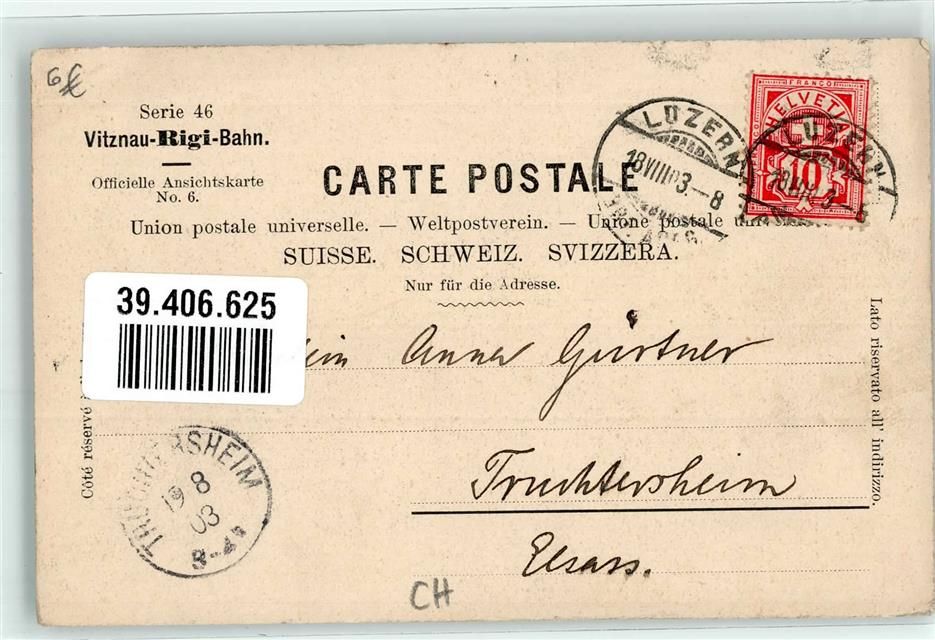 6 €
Serie 46
Vitznau-Rigi-Bahn.
Officielle Ansichtskarte
No. 6.
CARTE POSTALE
Union postale universelle. — Weltpostverein. — Unione postale
SUISSE. SCHWEIZ. SVIZZERA.
Nur für die Adresse.
FRANCO
HELVETIA
10
LUZERN
18 VIII 03 – 8
LUZERN
39.406.625
Anna Gürtner
Truchtersheim
Elsass.
Côté réservé
Lato riservato all' indirizzo.
TRUCHTERSHEIM
19 8
03
CH